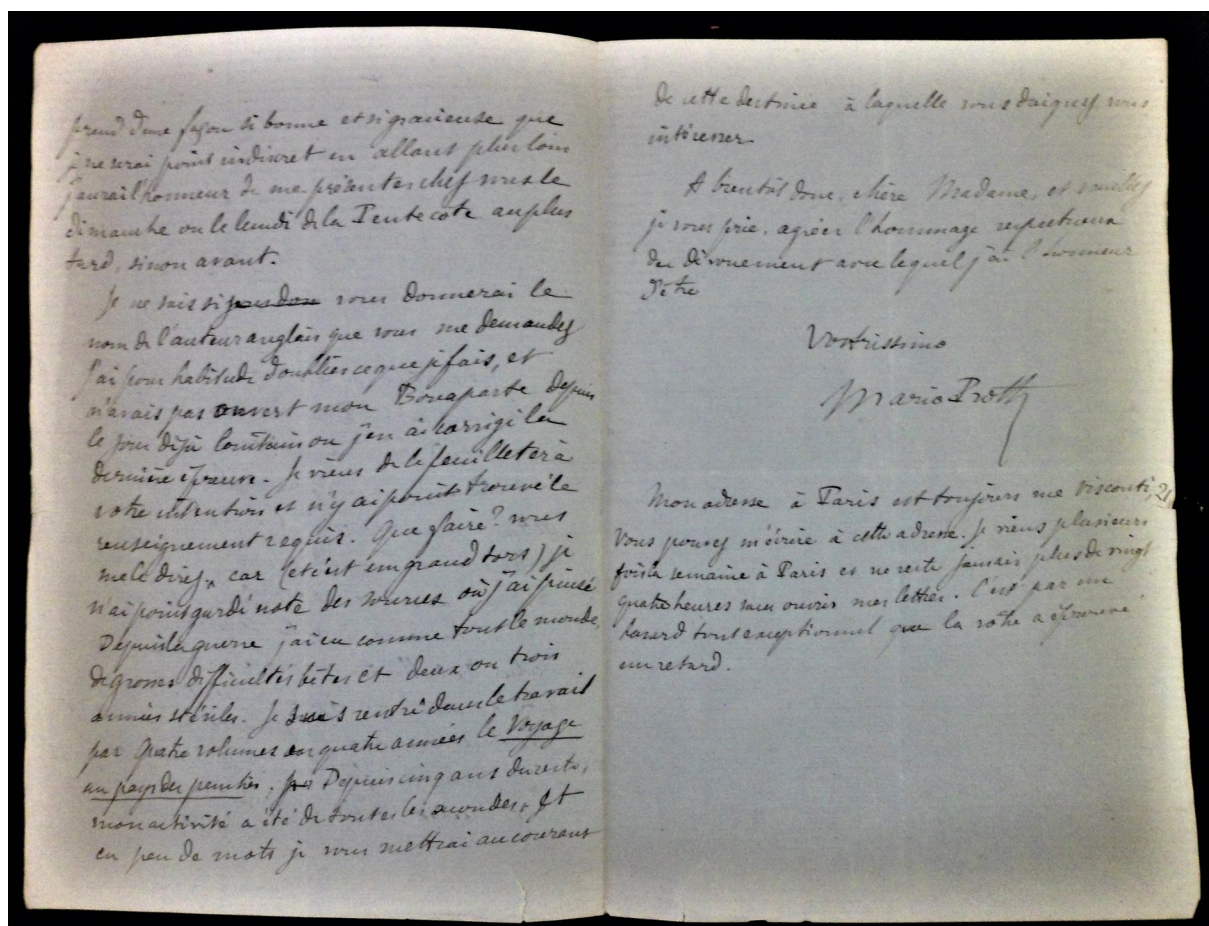 prend d'une façon si bonne et si gracieuse que
je ne serai point indiscret en allant plus loin
j'aurai l'honneur de me présenter chez vous le
dimanche ou le lundi de la Pentecôte au plus
tard, sinon avant.
Je ne sais si vous donnerai le
nom de l'auteur anglais que vous me demandez
J'ai pour habitude d'oublier ce que je fais, et
n'avais pas ouvert mon Bonaparte depuis
le jour déjà lointain où j'en ai corrigé la
dernière épreuve. Je viens de le feuilleter à
votre intention et n'y ai point trouvé le
renseignement requis. Que faire? vous
me le direz, car (et c'est un grand tort) je
n'ai point gardé note des sources où j'ai puisé
Depuis la guerre j'ai eu comme tout le monde,
de grosses difficultés bêtes et deux ou trois
années stériles. Je suis rentré dans le travail
par quatre volumes en quatre années le Voyage
au pays des peintres. Depuis cinq ans du reste,
mon activité a été de toutes les secondes. Et
en peu de mots je vous mettrai au courant
de cette destinée à laquelle vous daignez vous
intéresser
A bientôt donc, chère Madame, et veuillez
je vous prie, agréer l'hommage respectueux
du dévouement avec lequel j'ai l'honneur
d'être
Votrissimo
Mario Proth
Mon adresse à Paris est toujours rue Visconti, 21
Vous pouvez m'écrire à cette adresse. Je viens plusieurs
fois la semaine à Paris et ne reste jamais plus de vingt
quatre heures sans ouvrir mes lettres. C'est par un
hasard tout exceptionnel que la vôtre a éprouvé
un retard.